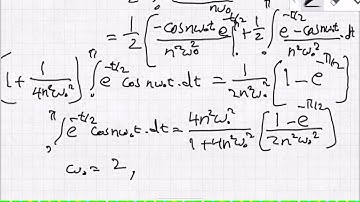 nω₀
= 1/2 { -cosnω₀t e^(-t/2) / n²ω₀² } + 1/2 ∫₀^π e^(-t/2) - cosnω₀t.dt / n²ω₀²
(1 + 1/4n²ω₀²) ∫₀^π e^(-t/2) cos nω₀t.dt = 1/2n²ω₀² { 1 - e^(-π/2) }
∫₀^π e^(-t/2) cosnω₀t.dt = 4n²ω₀² / 1+4n²ω₀² { 1-e^(-π/2) / 2n²ω₀² }
ω₀ = 2,